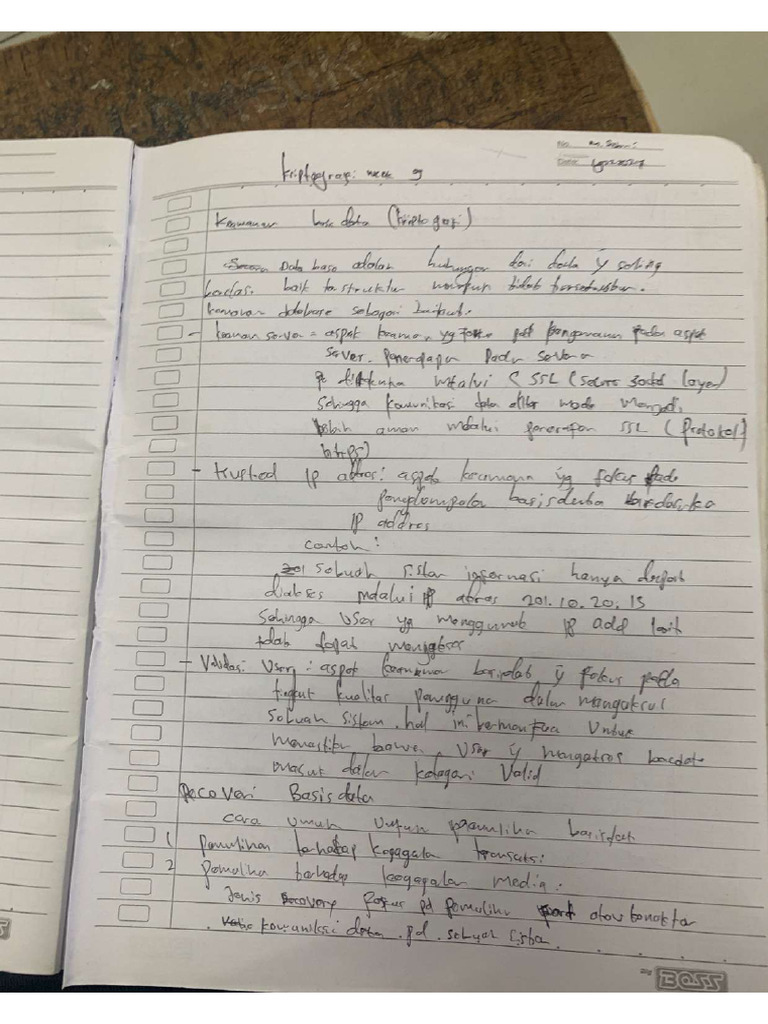 No.
Date
kriptografi week 9
keamanan base data (kriptografi)
Data base adalah hubungan dari data y saling
baik terstruktur maupun tidak terstruktur.
keamanan database sebagai berikut.
- keaman server = aspek keaman yg pd pengamanan pada aspek
server. penerapan Pada server
melalui SSL (secure socket layer)
sehingga komunikasi data menjadi
lebih aman melalui penerapan SSL (protokol
https)
- trusted IP adres: aspek keamana yg fokus pada
basisdata
IP addres
contoh:
sebuah sistem informasi hanya dapat
diakses melalui IP adres 201.10.20.15
sehingga user yg IP add lain
tidak dapat mengakses
- Validasi User: aspek keamanan y fokus pada
tingkat kualitas pengguna dalam mengakses
sebuah sistem. hal ini bermanfaat untuk
User y mengakses
masuk dalam kategori Valid
Recoveri Basisdata
cara umum
1 pemulihan terhadap kegagalan transaksi
2 pemulihan terhadap kegagalan media:
Jenis recovery fokus pd pemulihan atau
komunikasi data pd sebuah sistem.
BOSS